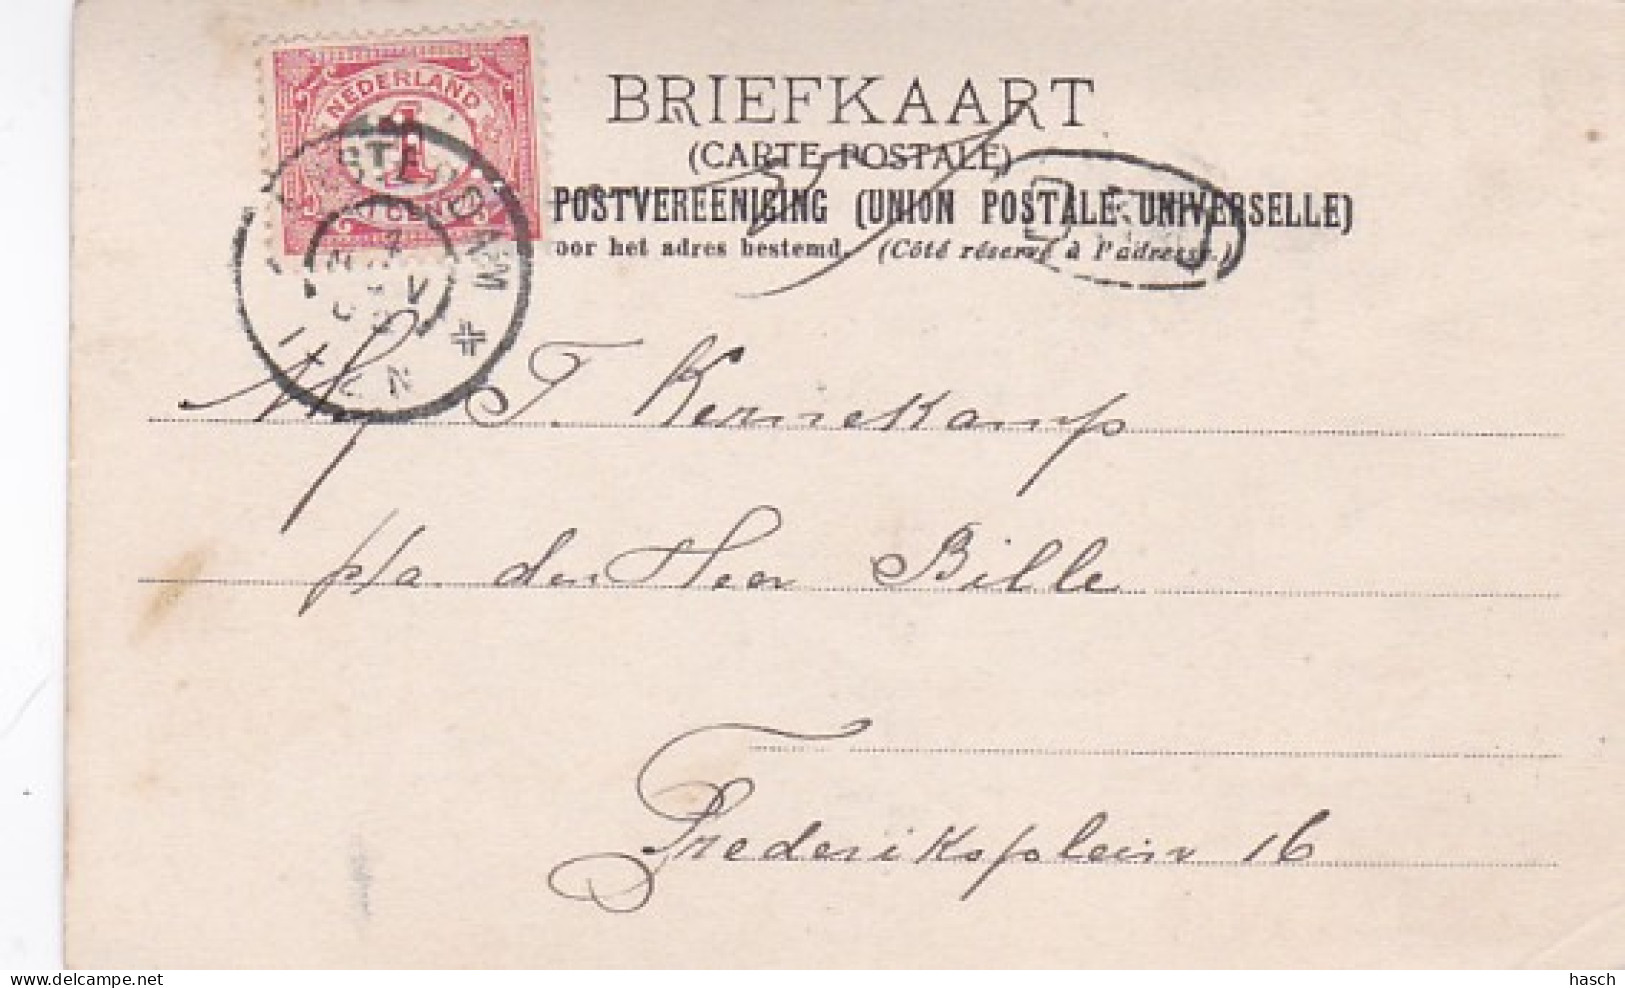 BRIEFKAART
(CARTE POSTALE)
POSTVEREENIGING (UNION POSTALE UNIVERSELLE)
oor het adres bestemd. (Côté réservé à l'adresse.)
NEDERLAND
1
CENT
AMSTERDAM
Mej T. Kernekamp
p/a den Heer Bille
Frederiksplein 16
hasch